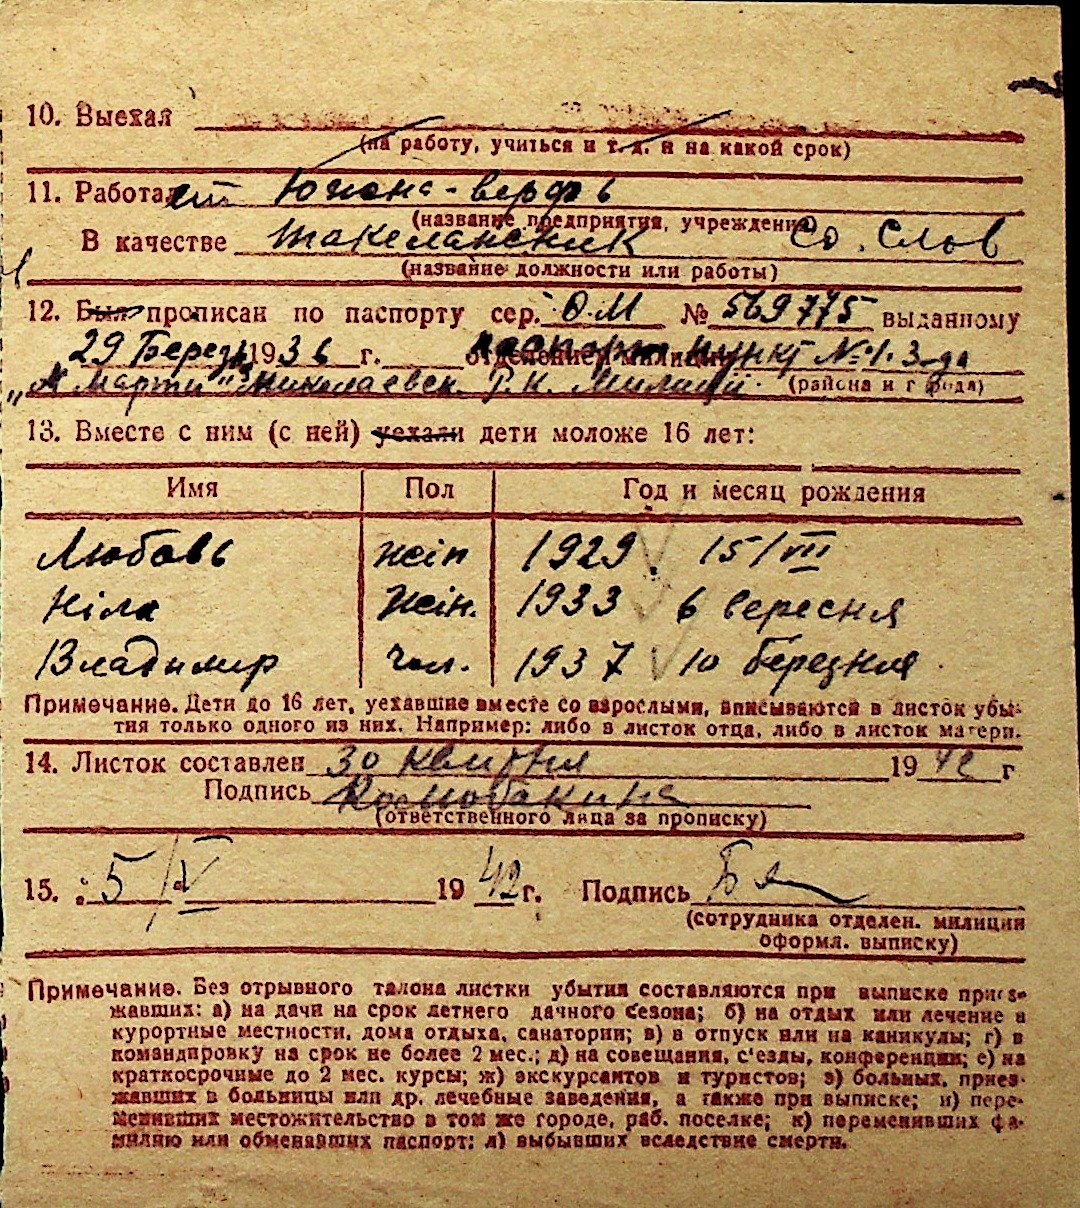 10. Выехал
(на работу, учиться и т. д. и на какой срок)
11. Работает Южна-верфь
(название предприятия, учреждения)
В качестве такелажник со слов
(название должности или работы)
12. Был прописан по паспорту сер. О.М № 569775 выданному
29 Березня 1936 г. отделением милиции паспорт пункт № 1. З-да
„А Марти" Николаевск. Р.К. Милиции (района и города)
13. Вместе с ним (с ней) уехали дети моложе 16 лет:
Имя Пол Год и месяц рождения
Любовь жін 1929. 15/VII
Ніла жін. 1933 6 вересня
Владимир чол. 1937 10 березня
Примечание. Дети до 16 лет, уехавшие вместе со взрослыми, вписываются в листок убы-
тия только одного из них. Например: либо в листок отца, либо в листок матери.
14. Листок составлен 30 квітня 1942 г
Подпись
(ответственного лица за прописку)
15. 5/V 1942 г. Подпись
(сотрудника отделен. милиции
оформл. выписку)
Примечание. Без отрывного талона листки убытия составляются при выписке приез-
жавших: а) на дачи на срок летнего дачного сезона; б) на отдых или лечение в
курортные местности, дома отдыха, санатории; в) в отпуск или на каникулы; г) в
командировку на срок не более 2 мес.; д) на совещания, с'езды, конференции; е) на
краткосрочные до 2 мес. курсы; ж) экскурсантов и туристов; з) больных, приез-
жавших в больницы или др. лечебные заведения, а также при выписке; и) пере-
менивших местожительство в том же городе, раб. поселке; к) переменивших фа-
милию или обменавших паспорт; л) выбывших вследствие смерти.